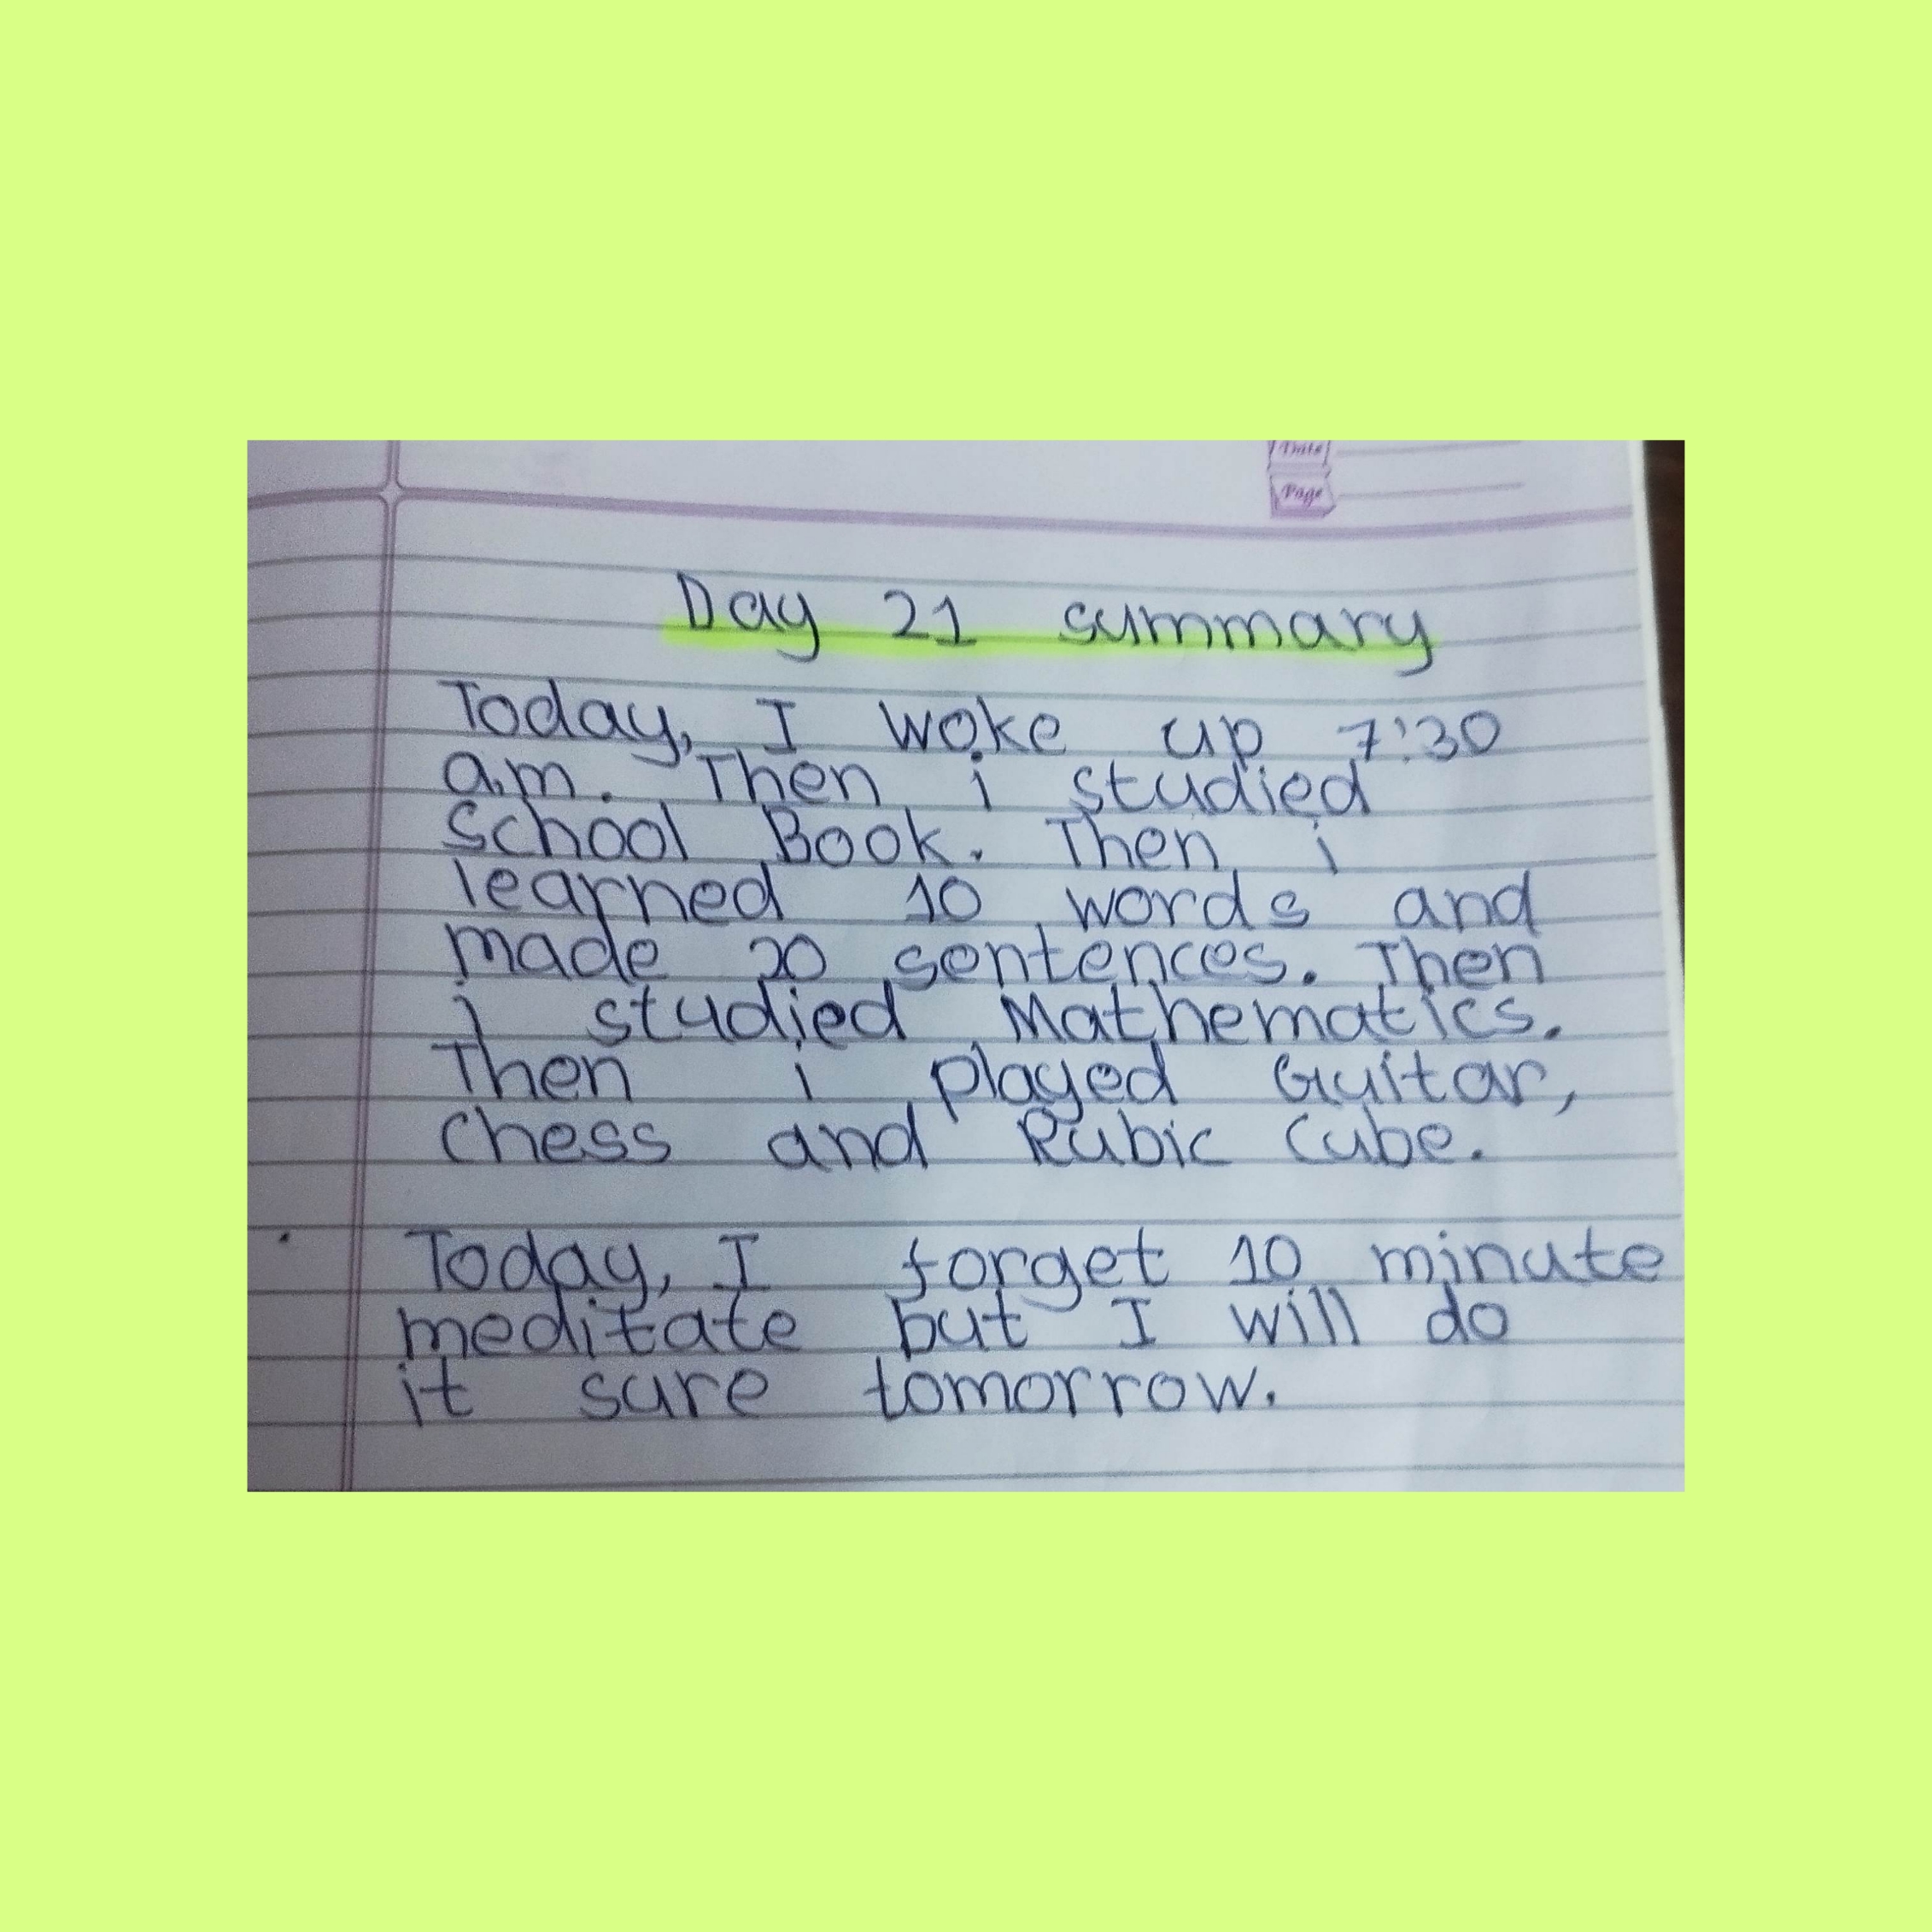 Date
Page
Day 21 summary
Today, I woke up 7:30
a.m. Then i studied
School Book. Then i
learned 10 words and
made 20 sentences. Then
i studied Mathematics.
Then i played Guitar,
Chess and Rubic Cube.
Today, I forget 10 minute
meditate but I will do
it sure tomorrow.